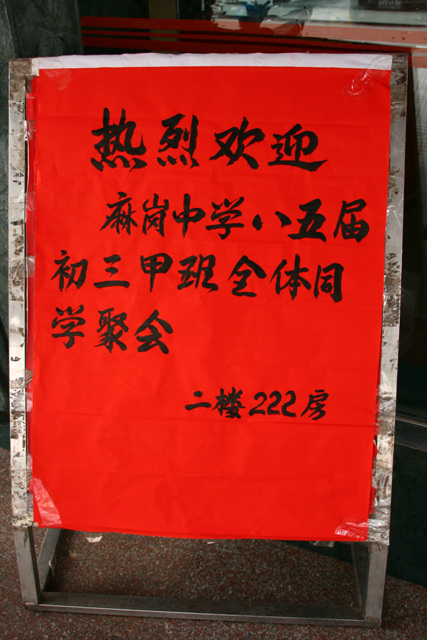 热烈欢迎
麻岗中学八五届
初三甲班全体同
学聚会
二楼222房